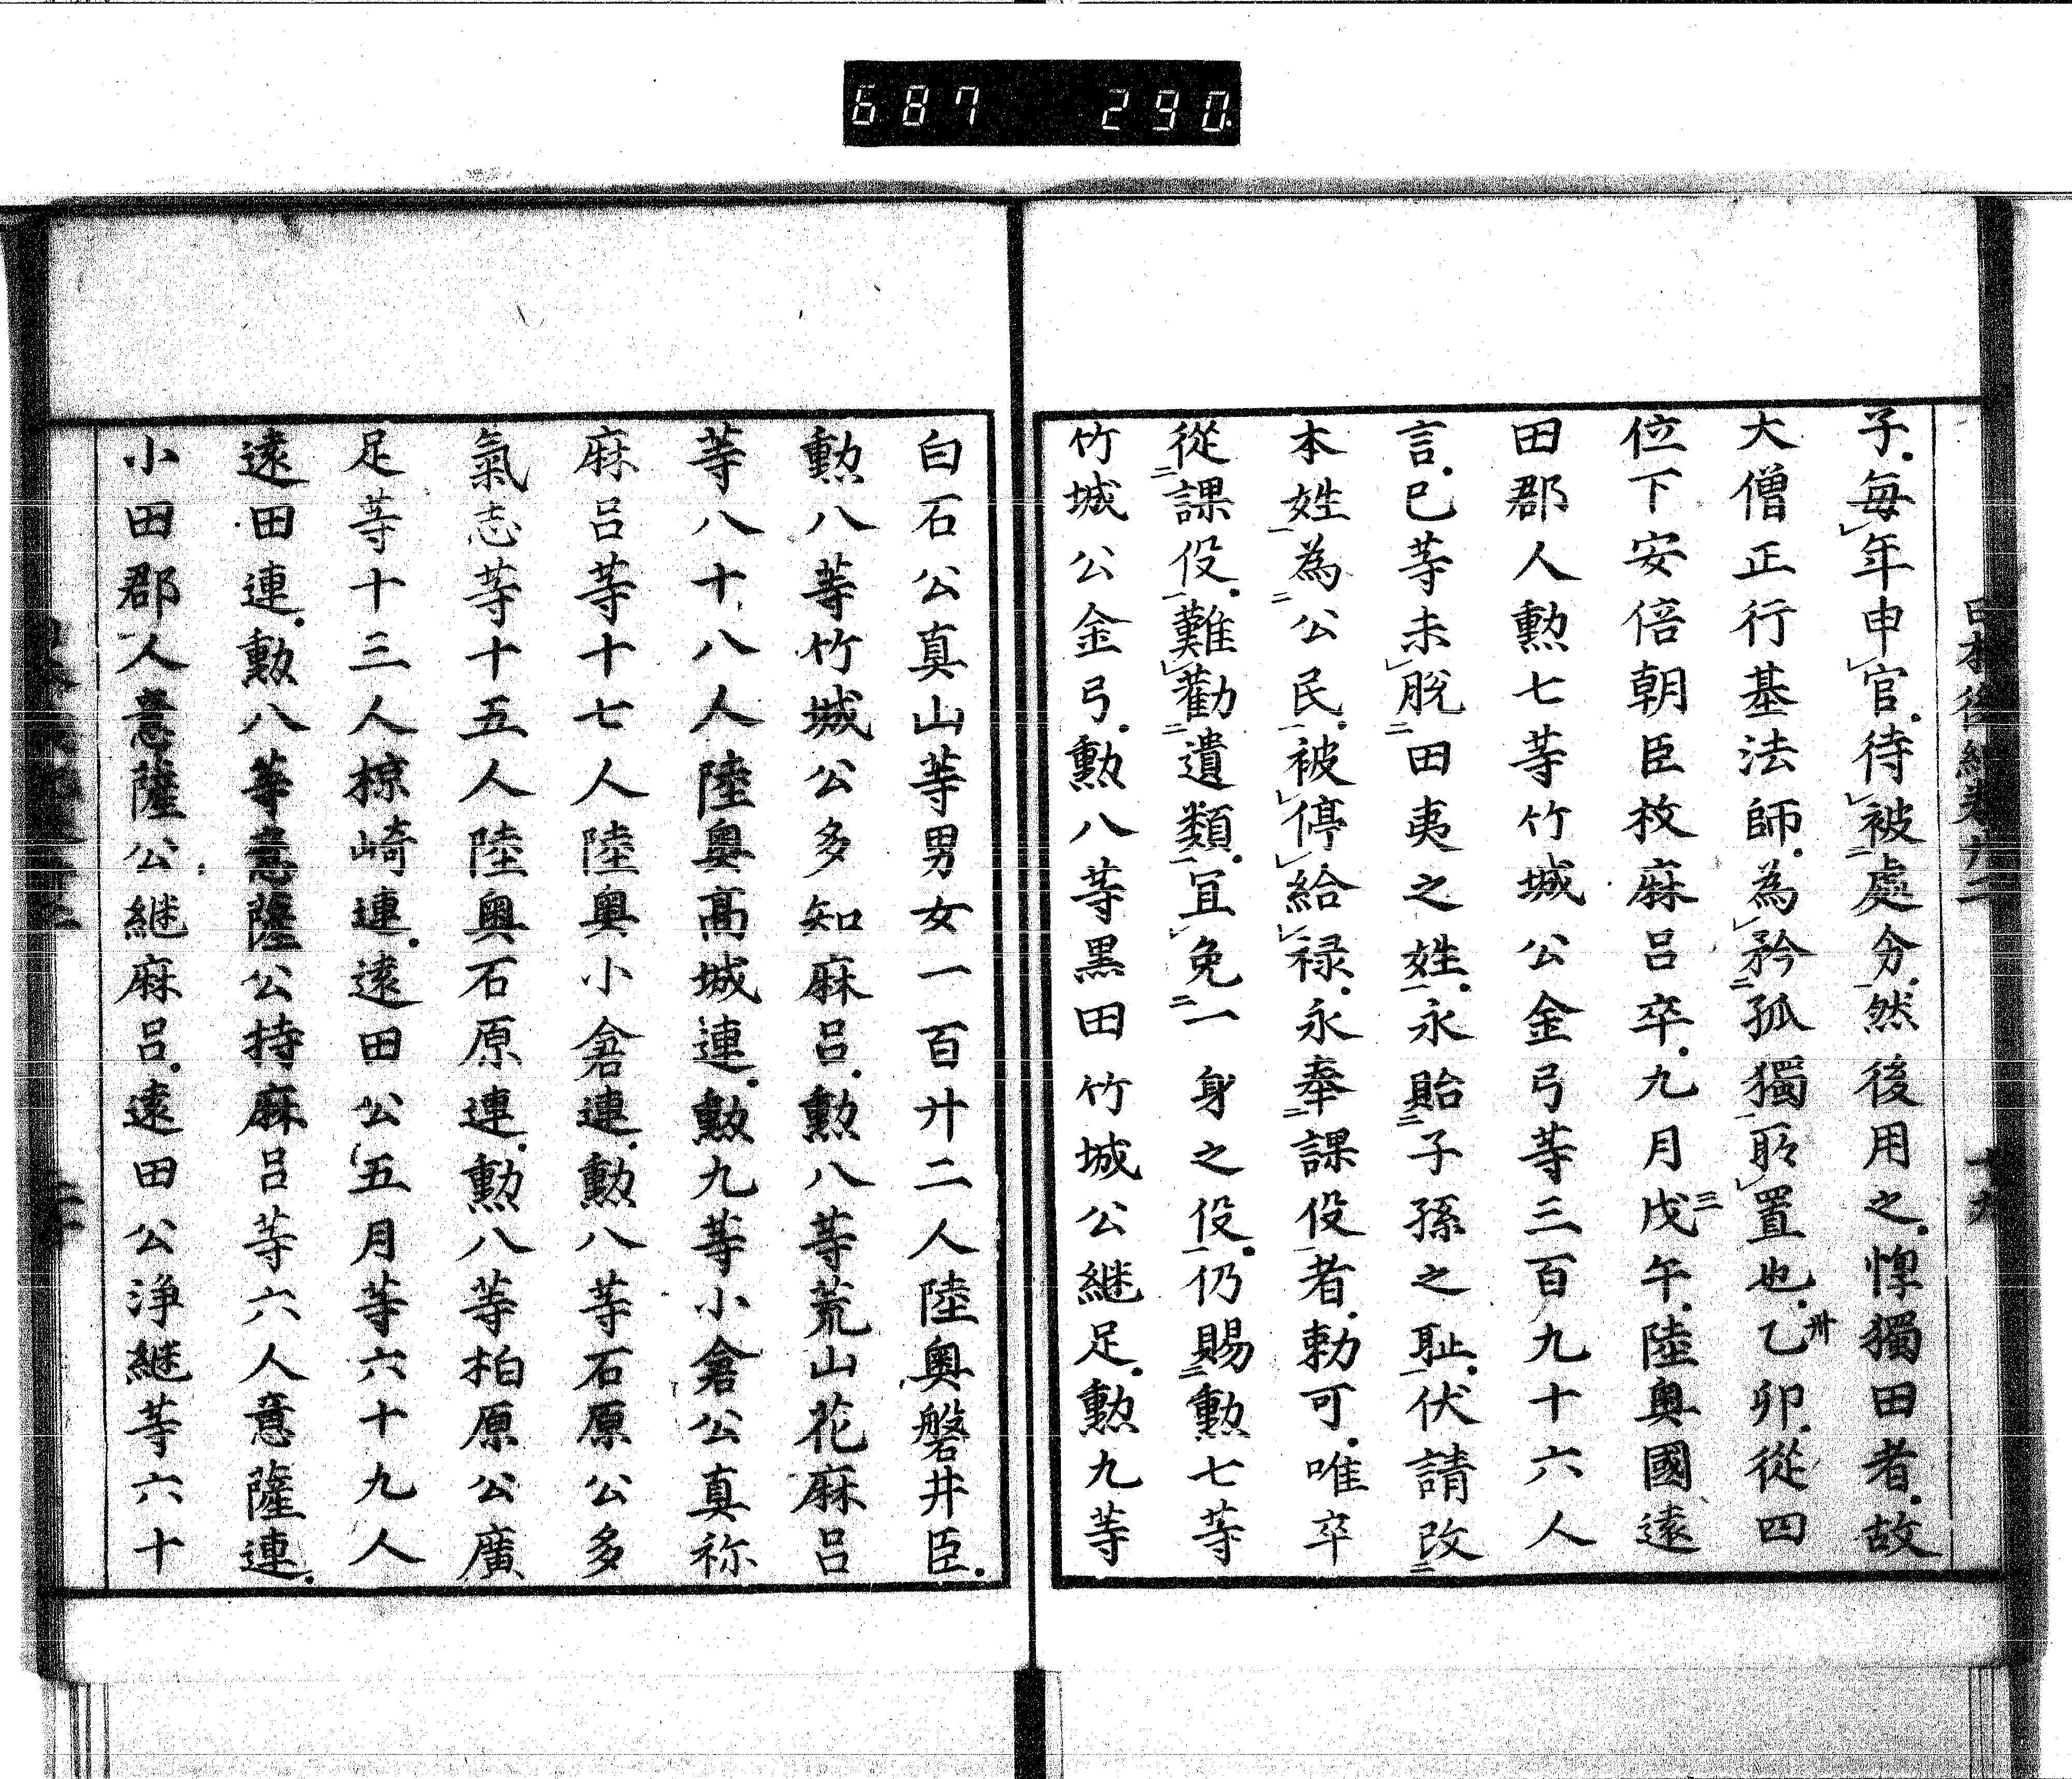 687 290
子毎年申官待被處分然後用之惸獨田者故
大僧正行基法師為矜孤獨所置也乙卯從四
卅
位下安倍朝臣枚麻呂卒九月戊午陸奥國遠
三
田郡人勲七等竹城公金弓等三百九十六人
言已等未脱田夷之姓永貽子孫之恥伏請改
本姓為公民被停給禄永奉課役者勅可唯卒
從課役難勸遺類宜免一身之役仍賜勲七等
竹城公金弓勲八等黒田竹城公継足勲九等
白石公真山等男女一百廾二人陸奥磐井臣
勲八等竹城公多知麻呂勲八等荒山花麻呂
等八十八人陸奥髙城連勲九等小倉公真祢
麻呂等十七人陸奥小倉連勲八等石原公多
氣志等十五人陸奥石原連勲八等柏原公廣
足等十三人椋﨑連遠田公五月等六十九人
遠田連勲八等意薩公持麻呂等六人意薩連
小田郡人意薩公継麻呂遠田公浄継等六十